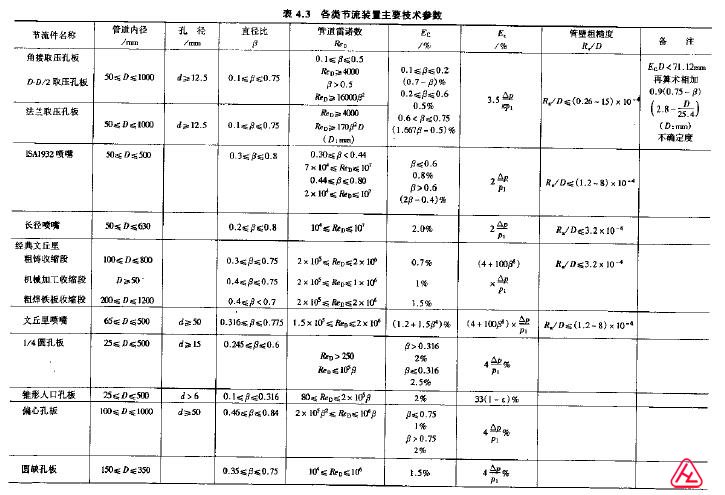 表 4.3 各类节流装置主要技术参数
节流件名称 管道内径/mm 孔 径/mm 直径比 β 管道雷诺数 ReD EC/% Eε/% 管壁粗糙度 Ra/D 备 注
角接取压孔板
D-D/2 取压孔板 50≤D≤1000 d≥12.5 0.1≤β≤0.75
0.1≤β≤0.5
ReD≥4000
β>0.5
ReD≥16000β²
0.1≤β≤0.2
(0.7-β)%
0.2≤β≤0.6
0.5%
0.6<β≤0.75
(1.667β-0.5)%
3.5 Δp/κp1
Ra/D≤(0.26~15)×10⁻⁴
D<71.12mm
再算术相加
0.9(0.75-β)
(2.8-D/25.4)
(D:mm)
不确定度
法兰取压孔板
50≤D≤1000 d≥12.5 0.1≤β≤0.75
ReD≥4000
ReD≥170β²D
(D:mm)
ISA1932 喷嘴 50≤D≤500 0.3≤β≤0.8
0.30≤β<0.44
7×10⁴≤ReD≤10⁷
0.44≤β≤0.80
2×10⁴≤ReD≤10⁷
β≤0.6
0.8%
β>0.6
(2β-0.4)%
2 Δp/p1
Ra/D≤(1.2~8)×10⁻⁴
长径喷嘴 50≤D≤630 0.2≤β≤0.8 10⁴≤ReD≤10⁷ 2.0% 2 Δp/p1 Ra/D≤3.2×10⁻⁴
经典文丘里
粗铸收缩段 100≤D≤800 0.3≤β≤0.75 2×10⁵≤ReD≤2×10⁶ 0.7% (4+100β⁸) Ra/D≤3.2×10⁻⁴
机械加工收缩段 D≥50 0.4≤β≤0.75 2×10⁵≤ReD≤1×10⁶ 1% ×Δp/p1
粗焊铁板收缩段 200≤D≤1200 0.4≤β<0.7 2×10⁵≤ReD≤2×10⁶ 1.5%
文丘里喷嘴 65≤D≤500 d≥50 0.316≤β≤0.775 1.5×10⁵≤ReD≤2×10⁶ (1.2+1.5β⁴)% (4+100β⁸)×Δp/p1 Ra/D≤(1.2~8)×10⁻⁴
1/4 圆孔板 25≤D≤500 d≥15 0.245≤β≤0.6
ReD>250
ReD≤10⁵β
β>0.316
2%
β≤0.316
2.5%
4 Δp/p1 %
锥形入口孔板 25≤D≤500 d>6 0.1≤β≤0.316 80≤ReD≤2×10⁵β 2% 33(1-ε)
偏心孔板 100≤D≤1000 d≥50 0.46≤β≤0.84 2×10⁵β²≤ReD≤10⁶β
β≤0.75
1%
β>0.75
2%
4 Δp/p1 %
圆缺孔板 150≤D≤350 0.35≤β≤0.75 10⁴≤ReD≤10⁶ 1.5% 4 Δp/p1 %